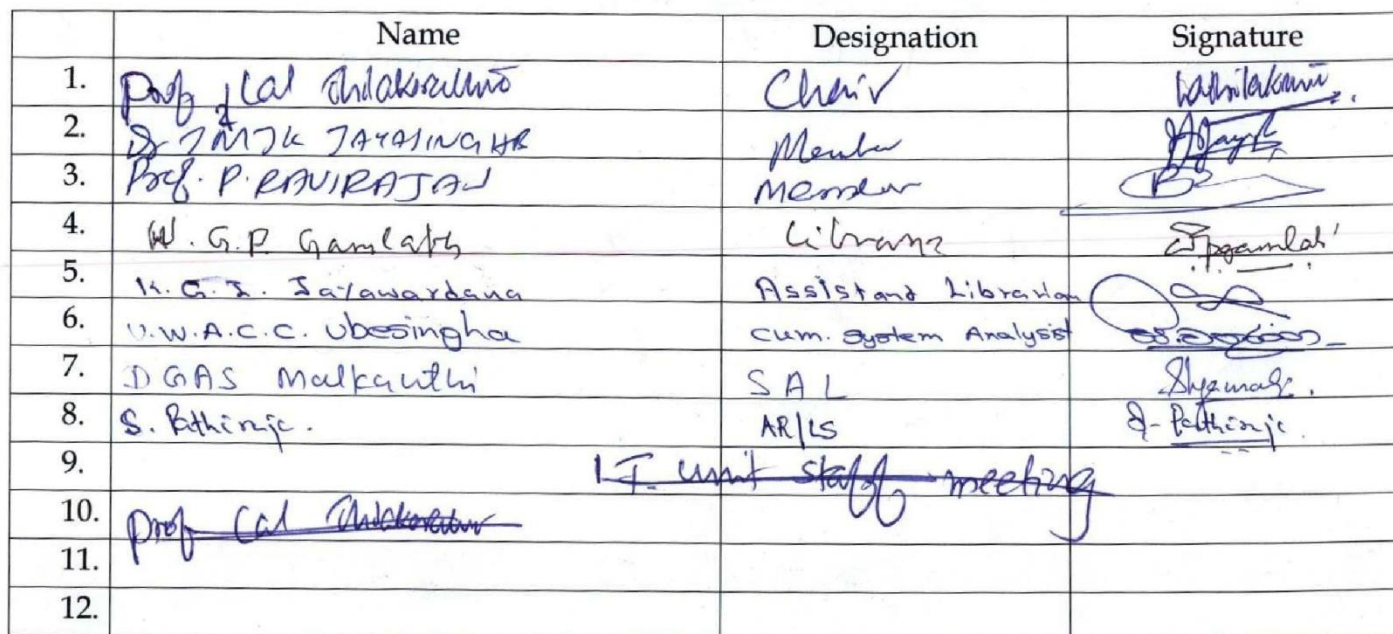 Name Designation Signature
1. Prof. Lal Thilakarathne Chair
2. Dr JMJK JAYASINGHE Member
3. Prof. P. RAVIRAJAN Member
4. W. G. P. Gamlath
5. K. G. I. Jayawardana Assistant Librarian
6. U.W.A.C.C. Ubesingha Cum. System Analysist
7. DGAS Malkanthi SAL Shyamali.
8. S. Pathiraja. AR/LS S. Pathiraja.
9. I.T. unit staff meeting
10. Prof Lal Thilakarathne
11.
12.